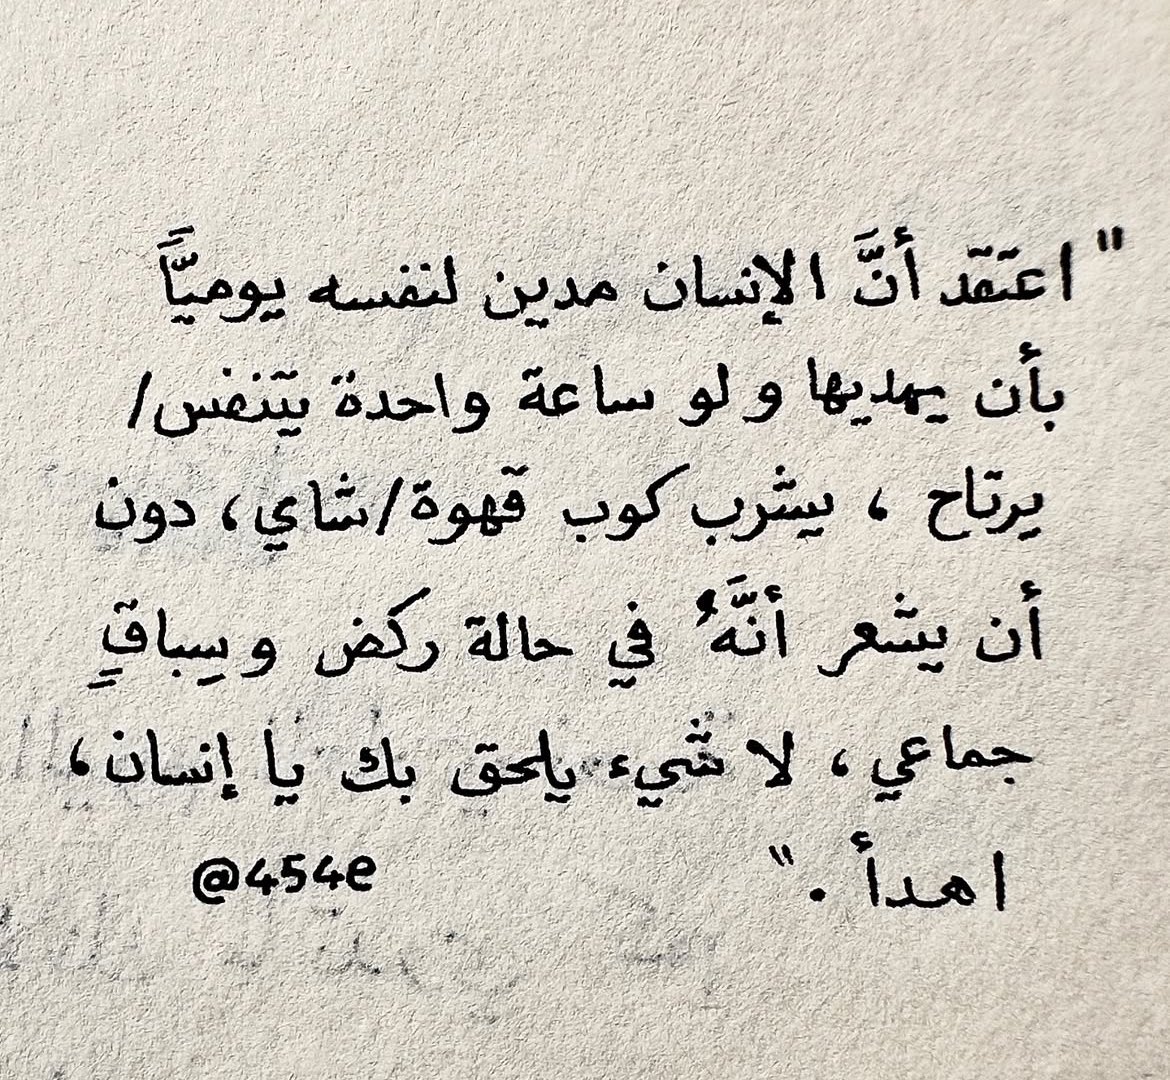 "اعتقد أنَّ الإنسان مدين لنفسه يوميًّا
بأن يهديها و لو ساعة واحدة يتنفس/
يرتاح ، يشرب كوب قهوة/شاي، دون
أن يشعر أنَّهُ في حالة ركض وسِباقٍ
جماعي، لا شيء يلحق بك يا إنسان،
اهدأ ."
@454e